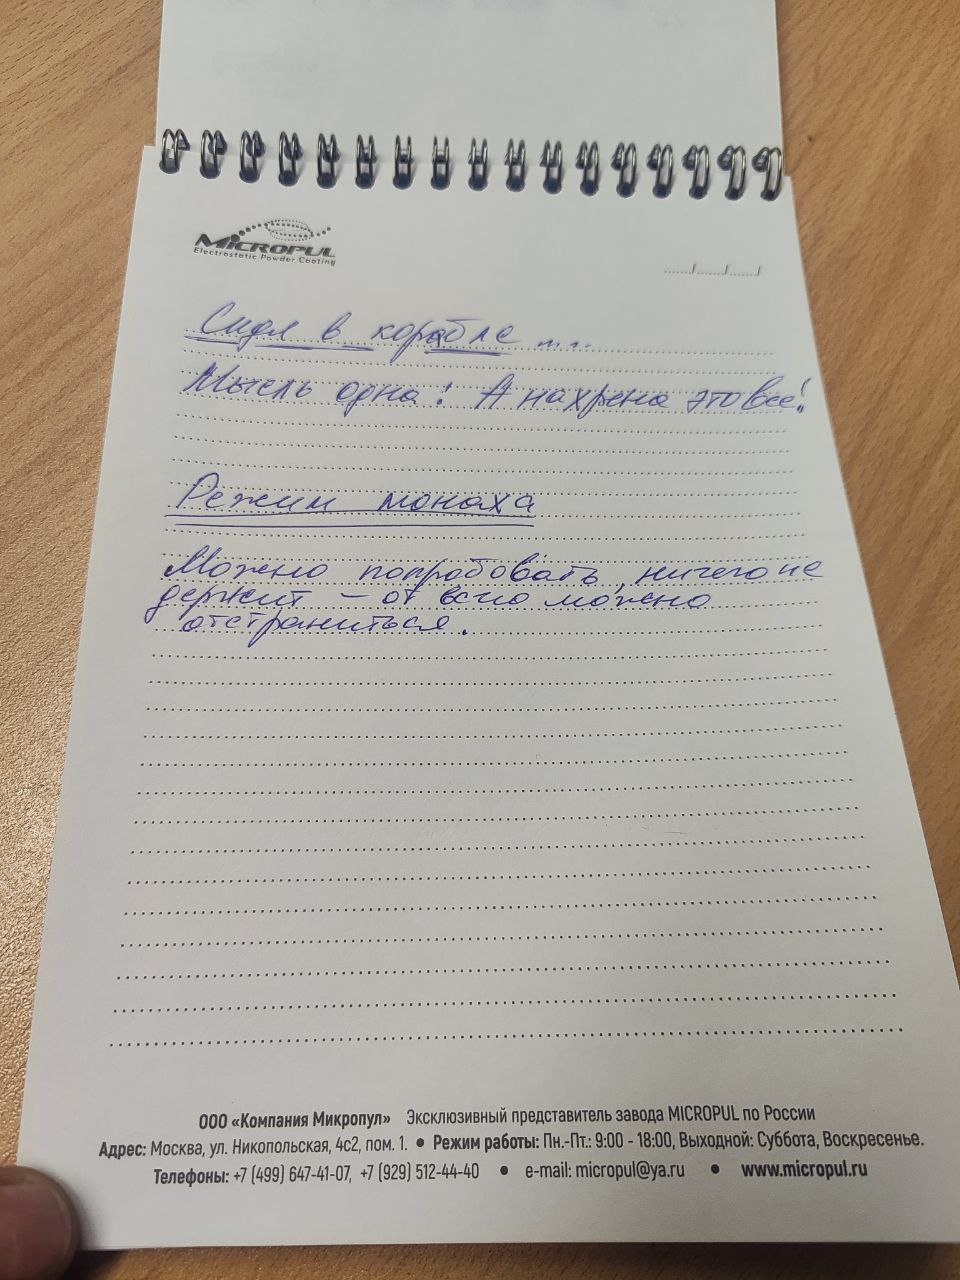 MICROPUL
Electrostatic Powder Coating
Сидя в корабле ....
Мысль одна! А нахрена это все!
Режим монаха
Можно попробовать, ничего не
держит – от всего можно
отстраниться.
ООО «Компания Микропул» Эксклюзивный представитель завода MICROPUL по России
Адрес: Москва, ул. Никопольская, 4с2, пом. 1. • Режим работы: Пн.-Пт.: 9:00 - 18:00, Выходной: Суббота, Воскресенье.
Телефоны: +7 (499) 647-41-07, +7 (929) 512-44-40 • e-mail: micropul@ya.ru • www.micropul.ru